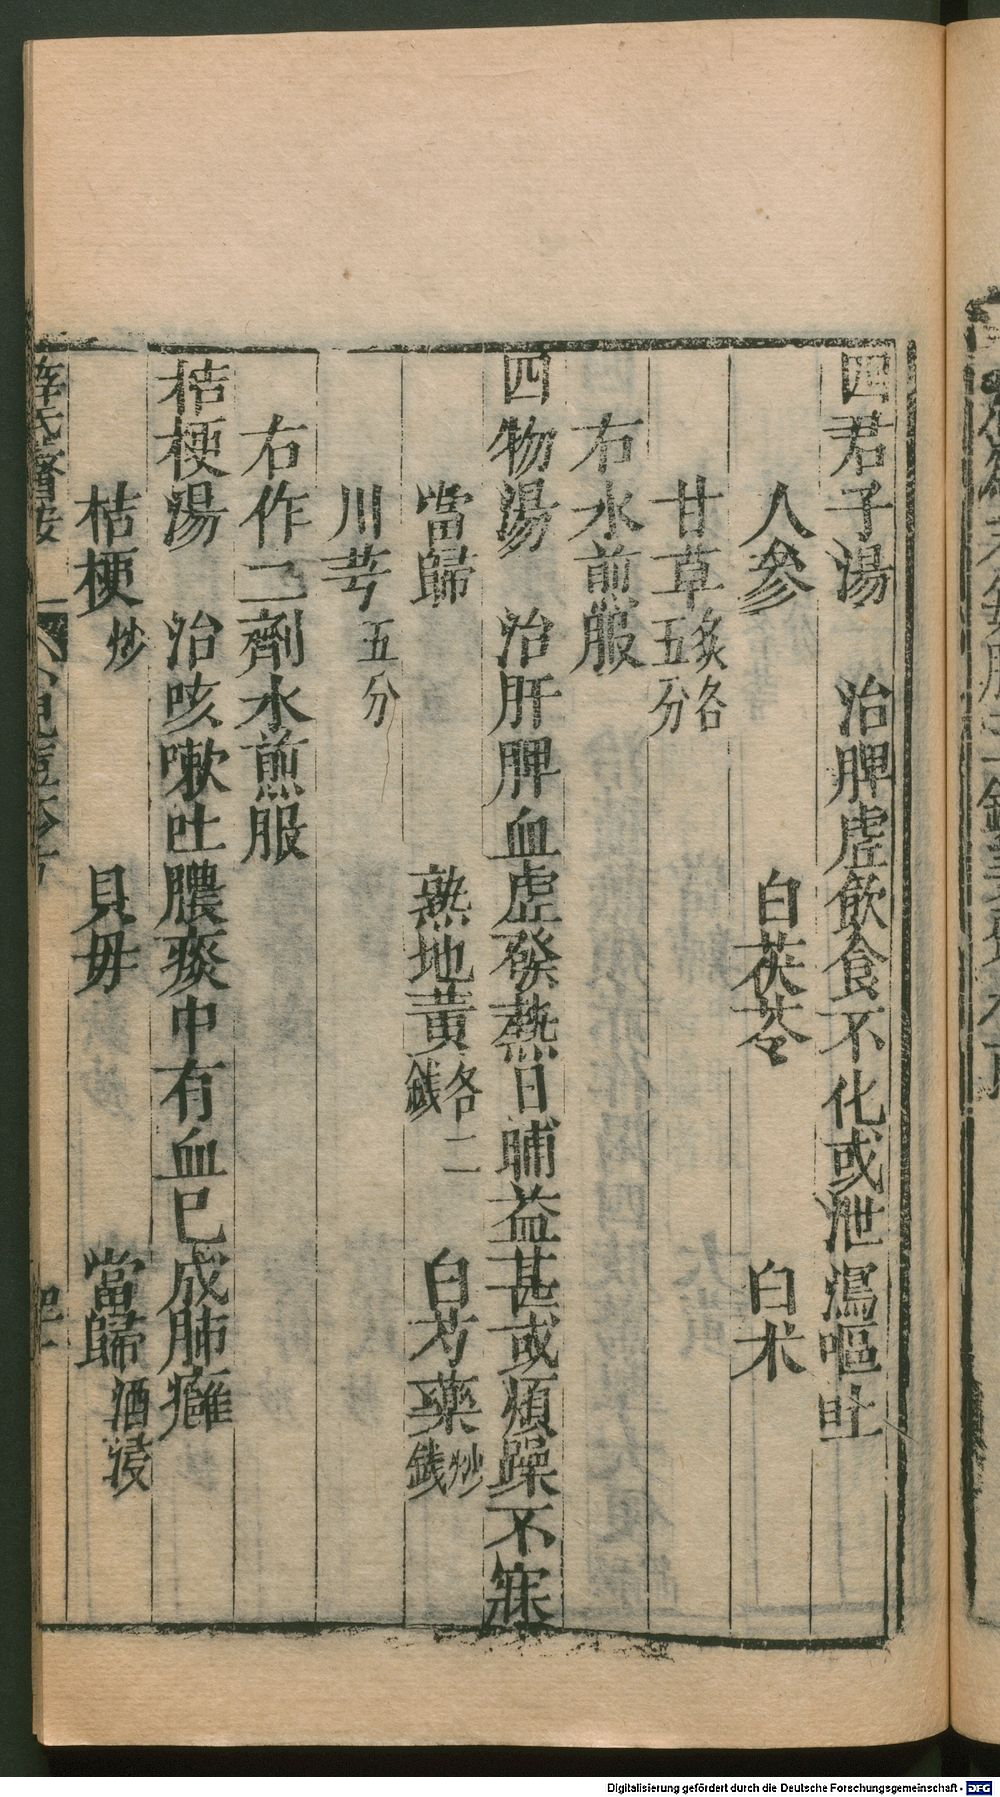 四君子湯　治脾虛飲食不化或泄瀉嘔吐
人參　白茯苓　白朮
甘草炙各五分
右水煎服
四物湯　治肝脾血虛發熱日晡益甚或煩躁不寐
當歸　熟地黃各二錢　白芍藥炒錢
川芎五分
右作二劑水煎服
桔梗湯　治咳嗽吐膿痰中有血已成肺癰
桔梗炒　貝母　當歸酒浸
薛氏醫按
Digitalisierung gefördert durch die Deutsche Forschungsgemeinschaft - DFG